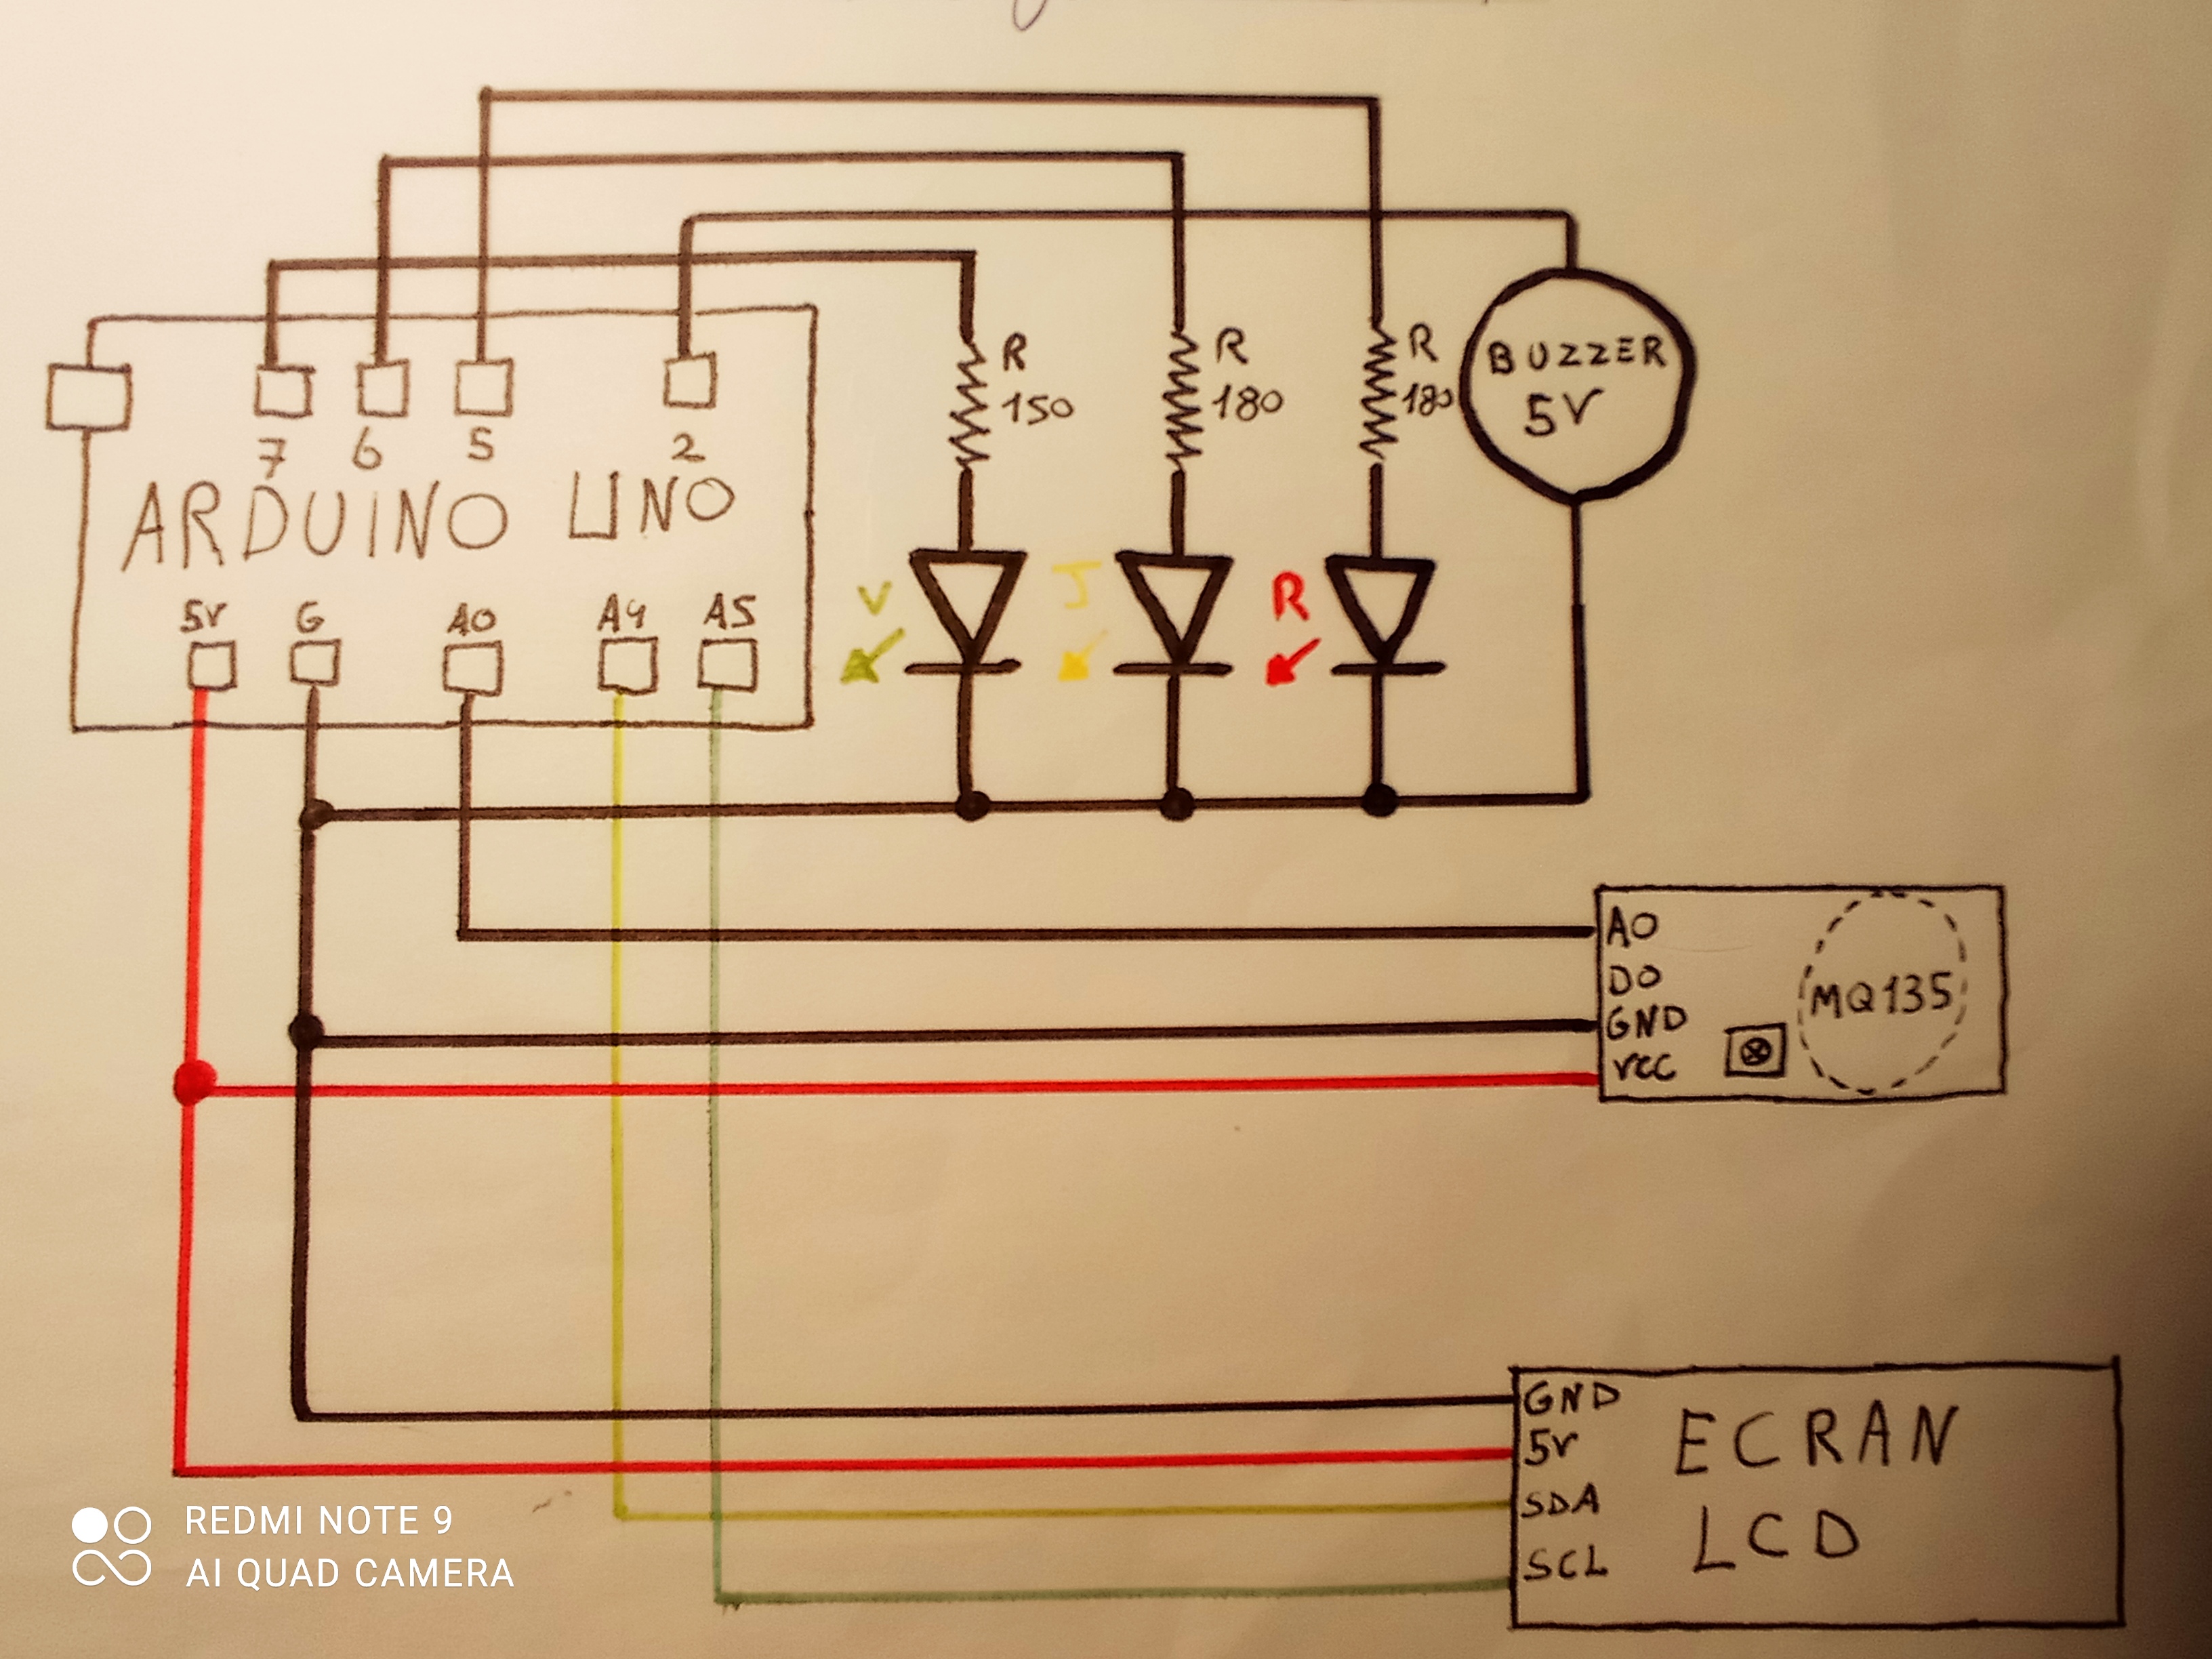 7 6 5 2
ARDUINO UNO
5V G A0 A4 A5
R
150
R
180
R
180
BUZZER
5V
V
J
R
A0
D0
GND
VCC
MQ135
GND
5V
SDA
SCL
ECRAN
LCD
REDMI NOTE 9
AI QUAD CAMERA